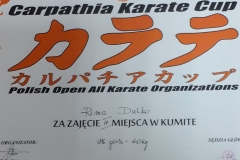 Carpathia Karate Cup
カラテ
カルパチアカップ
Polish Open All Karate Organizations
ZA ZAJĘCIE MIEJSCA W KUMITE
ORGANIZATOR:
SĘDZIA GŁÓW